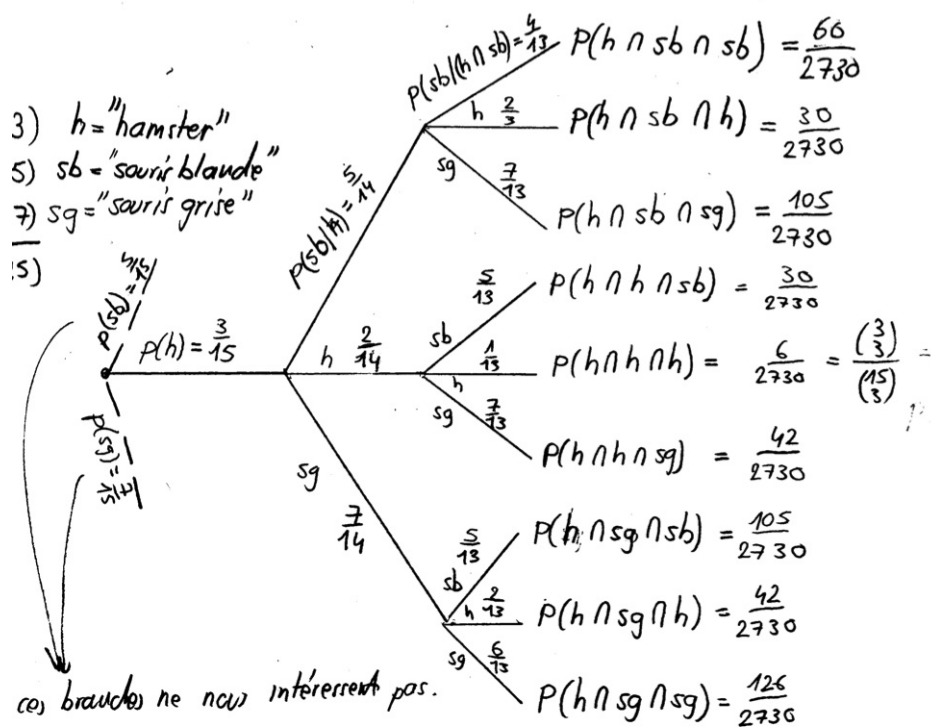 3) h = "hamster"
5) sb = "souris blanche"
7) sg = "souris grise"
15)
p(sb) = 5/15
p(h) = 3/15
p(sg) = 7/15
p(sb|h) = 5/14
h 2/14
sg 7/14
p(sb|(h ∩ sb) = 4/13
P(h ∩ sb ∩ sb) = 60/2730
h 2/3
P(h ∩ sb ∩ h) = 30/2730
sg 7/13
P(h ∩ sb ∩ sg) = 105/2730
sb 5/13
P(h ∩ h ∩ sb) = 30/2730
h 1/13
P(h ∩ h ∩ h) = 6/2730 = (3 3)/(15 3) =
sg 7/13
P(h ∩ h ∩ sg) = 42/2730
sb 5/13
P(h ∩ sg ∩ sb) = 105/2730
h 2/13
P(h ∩ sg ∩ h) = 42/2730
sg 6/13
P(h ∩ sg ∩ sg) = 126/2730
ces branches ne nous intéressent pas.